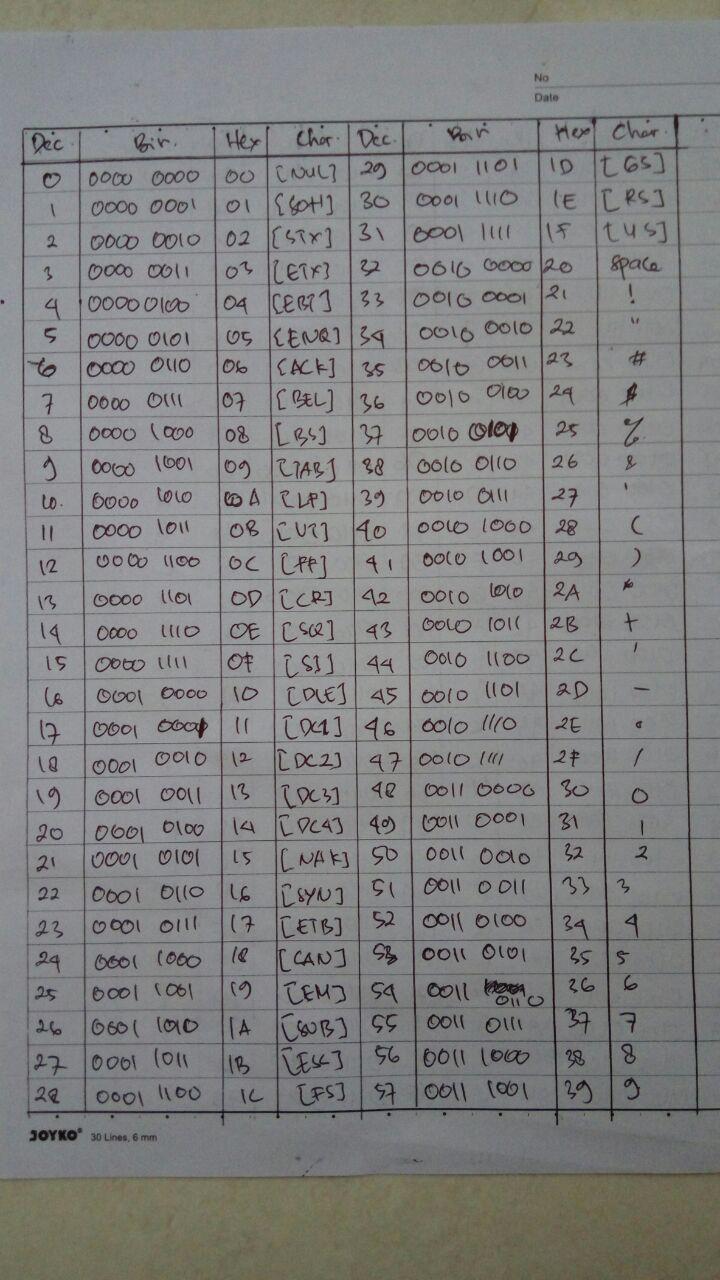 No
Date
Dec. Bin. Hex Char. Dec. Bin Hex Char.
0 0000 0000 00 [NUL] 29 0001 1101 1D [GS]
1 0000 0001 01 [SOH] 30 0001 1110 1E [RS]
2 0000 0010 02 [STX] 31 0001 1111 1F [US]
3 0000 0011 03 [ETX] 32 0010 0000 20 space
4 0000 0100 04 [EBT] 33 0010 0001 21 !
5 0000 0101 05 [ENQ] 34 0010 0010 22 "
6 0000 0110 06 [ACK] 35 0010 0011 23 #
7 0000 0111 07 [BEL] 36 0010 0100 24 $
8 0000 1000 08 [BS] 37 0010 0101 25 %
9 0000 1001 09 [TAB] 38 0010 0110 26 &
10. 0000 1010 0A [LF] 39 0010 0111 27 '
11 0000 1011 0B [VT] 40 0010 1000 28 (
12 0000 1100 0C [FF] 41 0010 1001 29 )
13 0000 1101 0D [CR] 42 0010 1010 2A *
14 0000 1110 0E 43 0010 1011 2B +
15 0000 1111 0F [SI] 44 0010 1100 2C '
16 0001 0000 10 [DLE] 45 0010 1101 2D -
17 0001 0001 11 [DC1] 46 0010 1110 2E .
18 0001 0010 12 [DC2] 47 0010 1111 2F /
19 0001 0011 13 [DC3] 48 0011 0000 30 0
20 0001 0100 14 [DC4] 49 0011 0001 31 1
21 0001 0101 15 [NAK] 50 0011 0010 32 2
22 0001 0110 16 [SYN] 51 0011 0011 33 3
23 0001 0111 17 [ETB] 52 0011 0100 34 4
24 0001 1000 18 [CAN] 53 0011 0101 35 5
25 0001 1001 19 [EM] 54 0011 0110 36 6
26 0001 1010 1A [SUB] 55 0011 0111 37 7
27 0001 1011 1B [ESC] 56 0011 1000 38 8
28 0001 1100 1C [FS] 57 0011 1001 39 9
JOYKO® 30 Lines, 6 mm